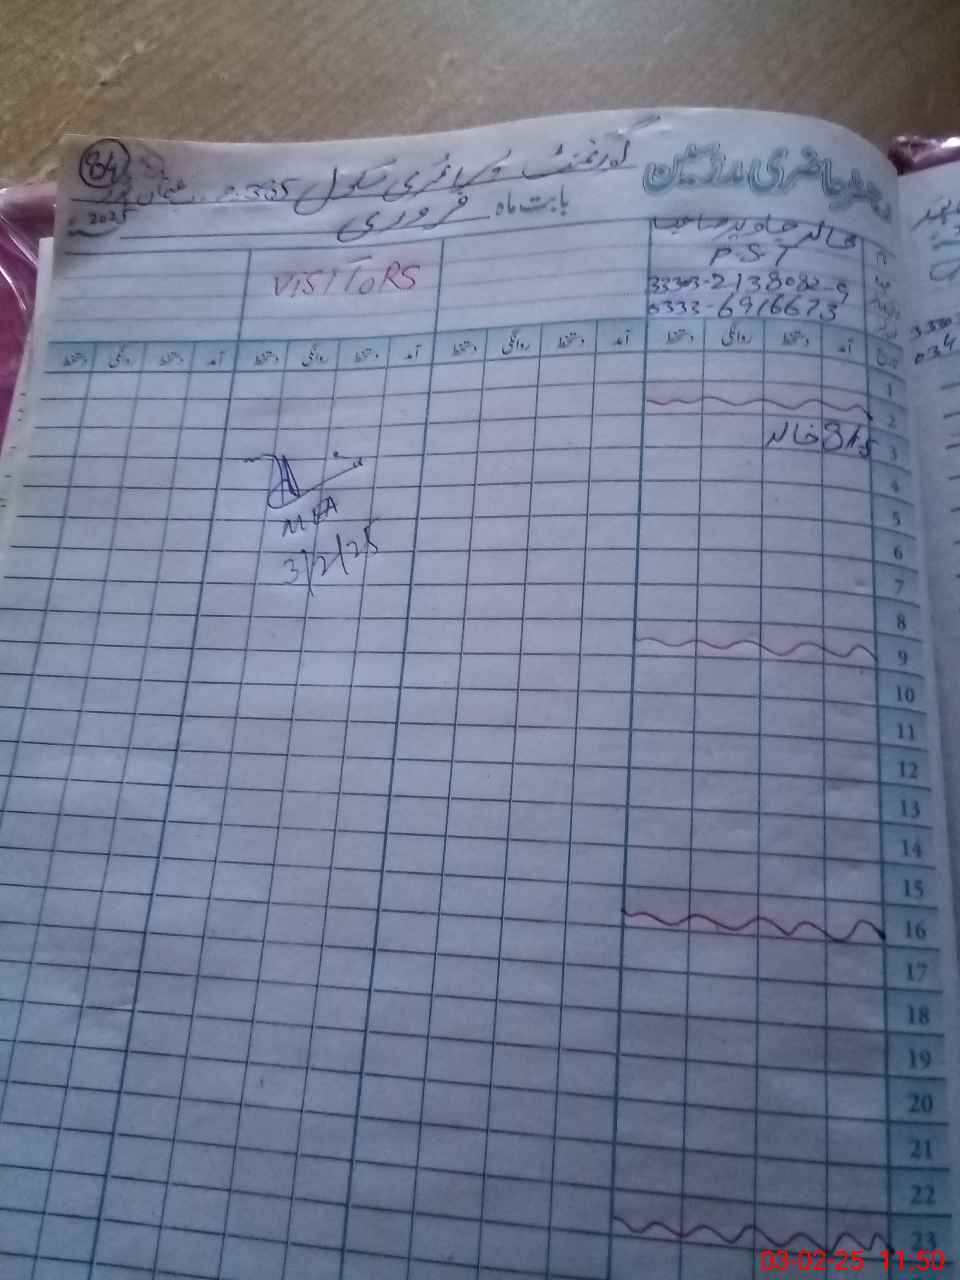 رجسٹر حاضری مدرسین
گورنمنٹ پرائمری سکول 365
84
بابت ماہ فروری
2025
خالد جاوید صاحب
P.S.T
33303-2138082-9
0333-6916673
VISITORS
آمد دستخط روانگی دستخط آمد دستخط روانگی دستخط آمد دستخط روانگی دستخط آمد دستخط روانگی دستخط
1
2
3 815 خالد
4
5
6
7
8
9
10
11
12
13
14
15
16
17
18
19
20
21
22
23
MEA
3/2/25
03-02-25 11:50